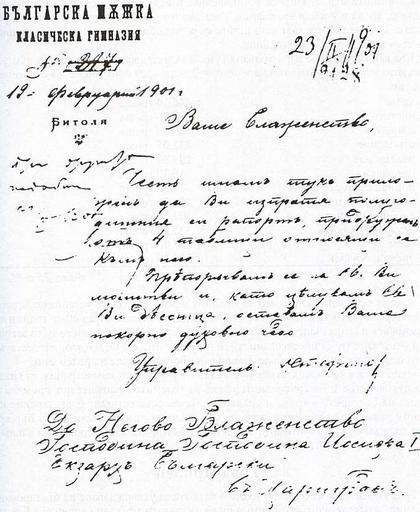 БЪЛГАРСКА МѪЖКА
КЛАСИЧЕСКА ГИМНАЗИЯ
№ 347
19 Февруарий 1901 г.
Битоля
23/II
Ваше Блаженство,
Честь имамъ тукъ прило-
женъ да Ви изпратя полуго-
дишния си рапортъ, придруженъ
отъ 4 таблици относящи се
къмъ него.
Прѣпоръчвамъ се на Св. Ви
молитви и, като цѣлувамъ Св.
Ви Дѣсница, оставамъ Ваше
покорно духовно чадо
Управитель:
До Негово Блаженство
Господина Господина Иосифа I
Екзархъ Български
въ Цариградъ.